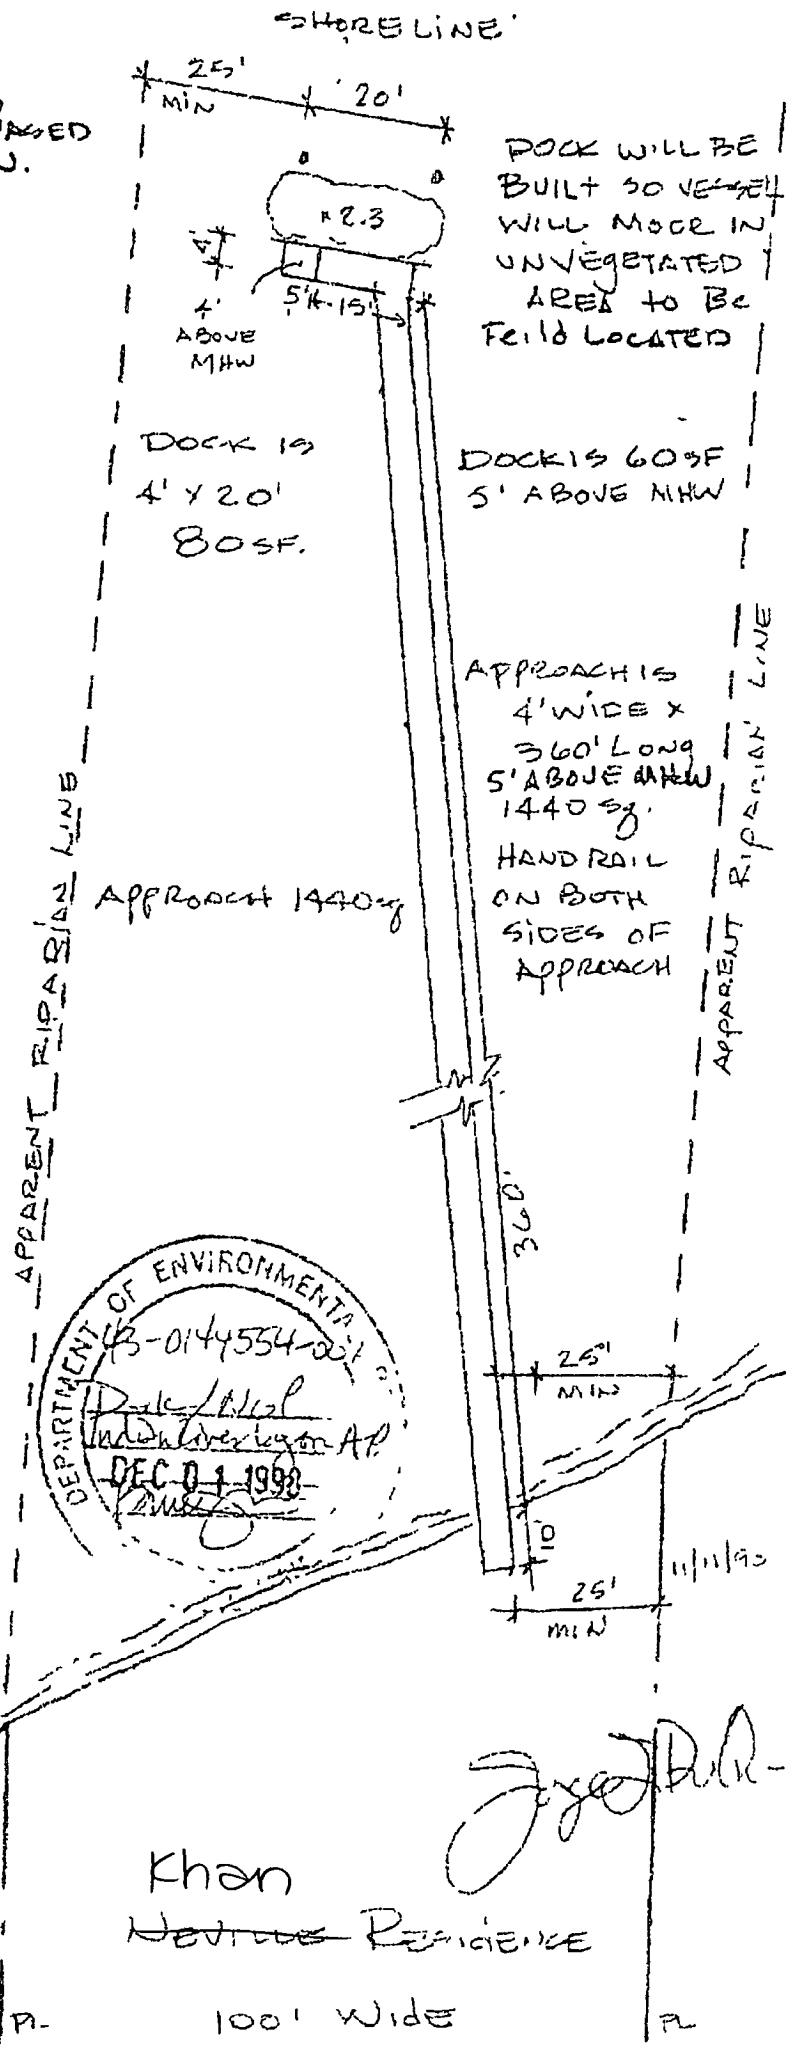 SHORELINE
25'
MIN
20'
DOCK WILL BE
BUILT SO VESSEL
WILL MOOR IN
UNVEGETATED
AREA to Be
Feild LOCATED
x 2.3
4'
5'
15'
4'
ABOVE
MHW
DOCK IS
4' X 20'
80 SF.
DOCK IS 60 SF
5' ABOVE MHW
APPROACH IS
4' WIDE X
360' LONG
5' ABOVE MHW
1440 Sq.
HAND RAIL
ON BOTH
SIDES OF
APPROACH
APPROACH 1440 sq
APPARENT RIPARIAN LINE
APPARENT RIPARIAN LINE
360'
DEPARTMENT OF ENVIRONMENTAL
DEC 01 1998
25'
MIN
10
25'
MIN
Khan
Neville RESIDENCE
100' WIDE
PL
PL